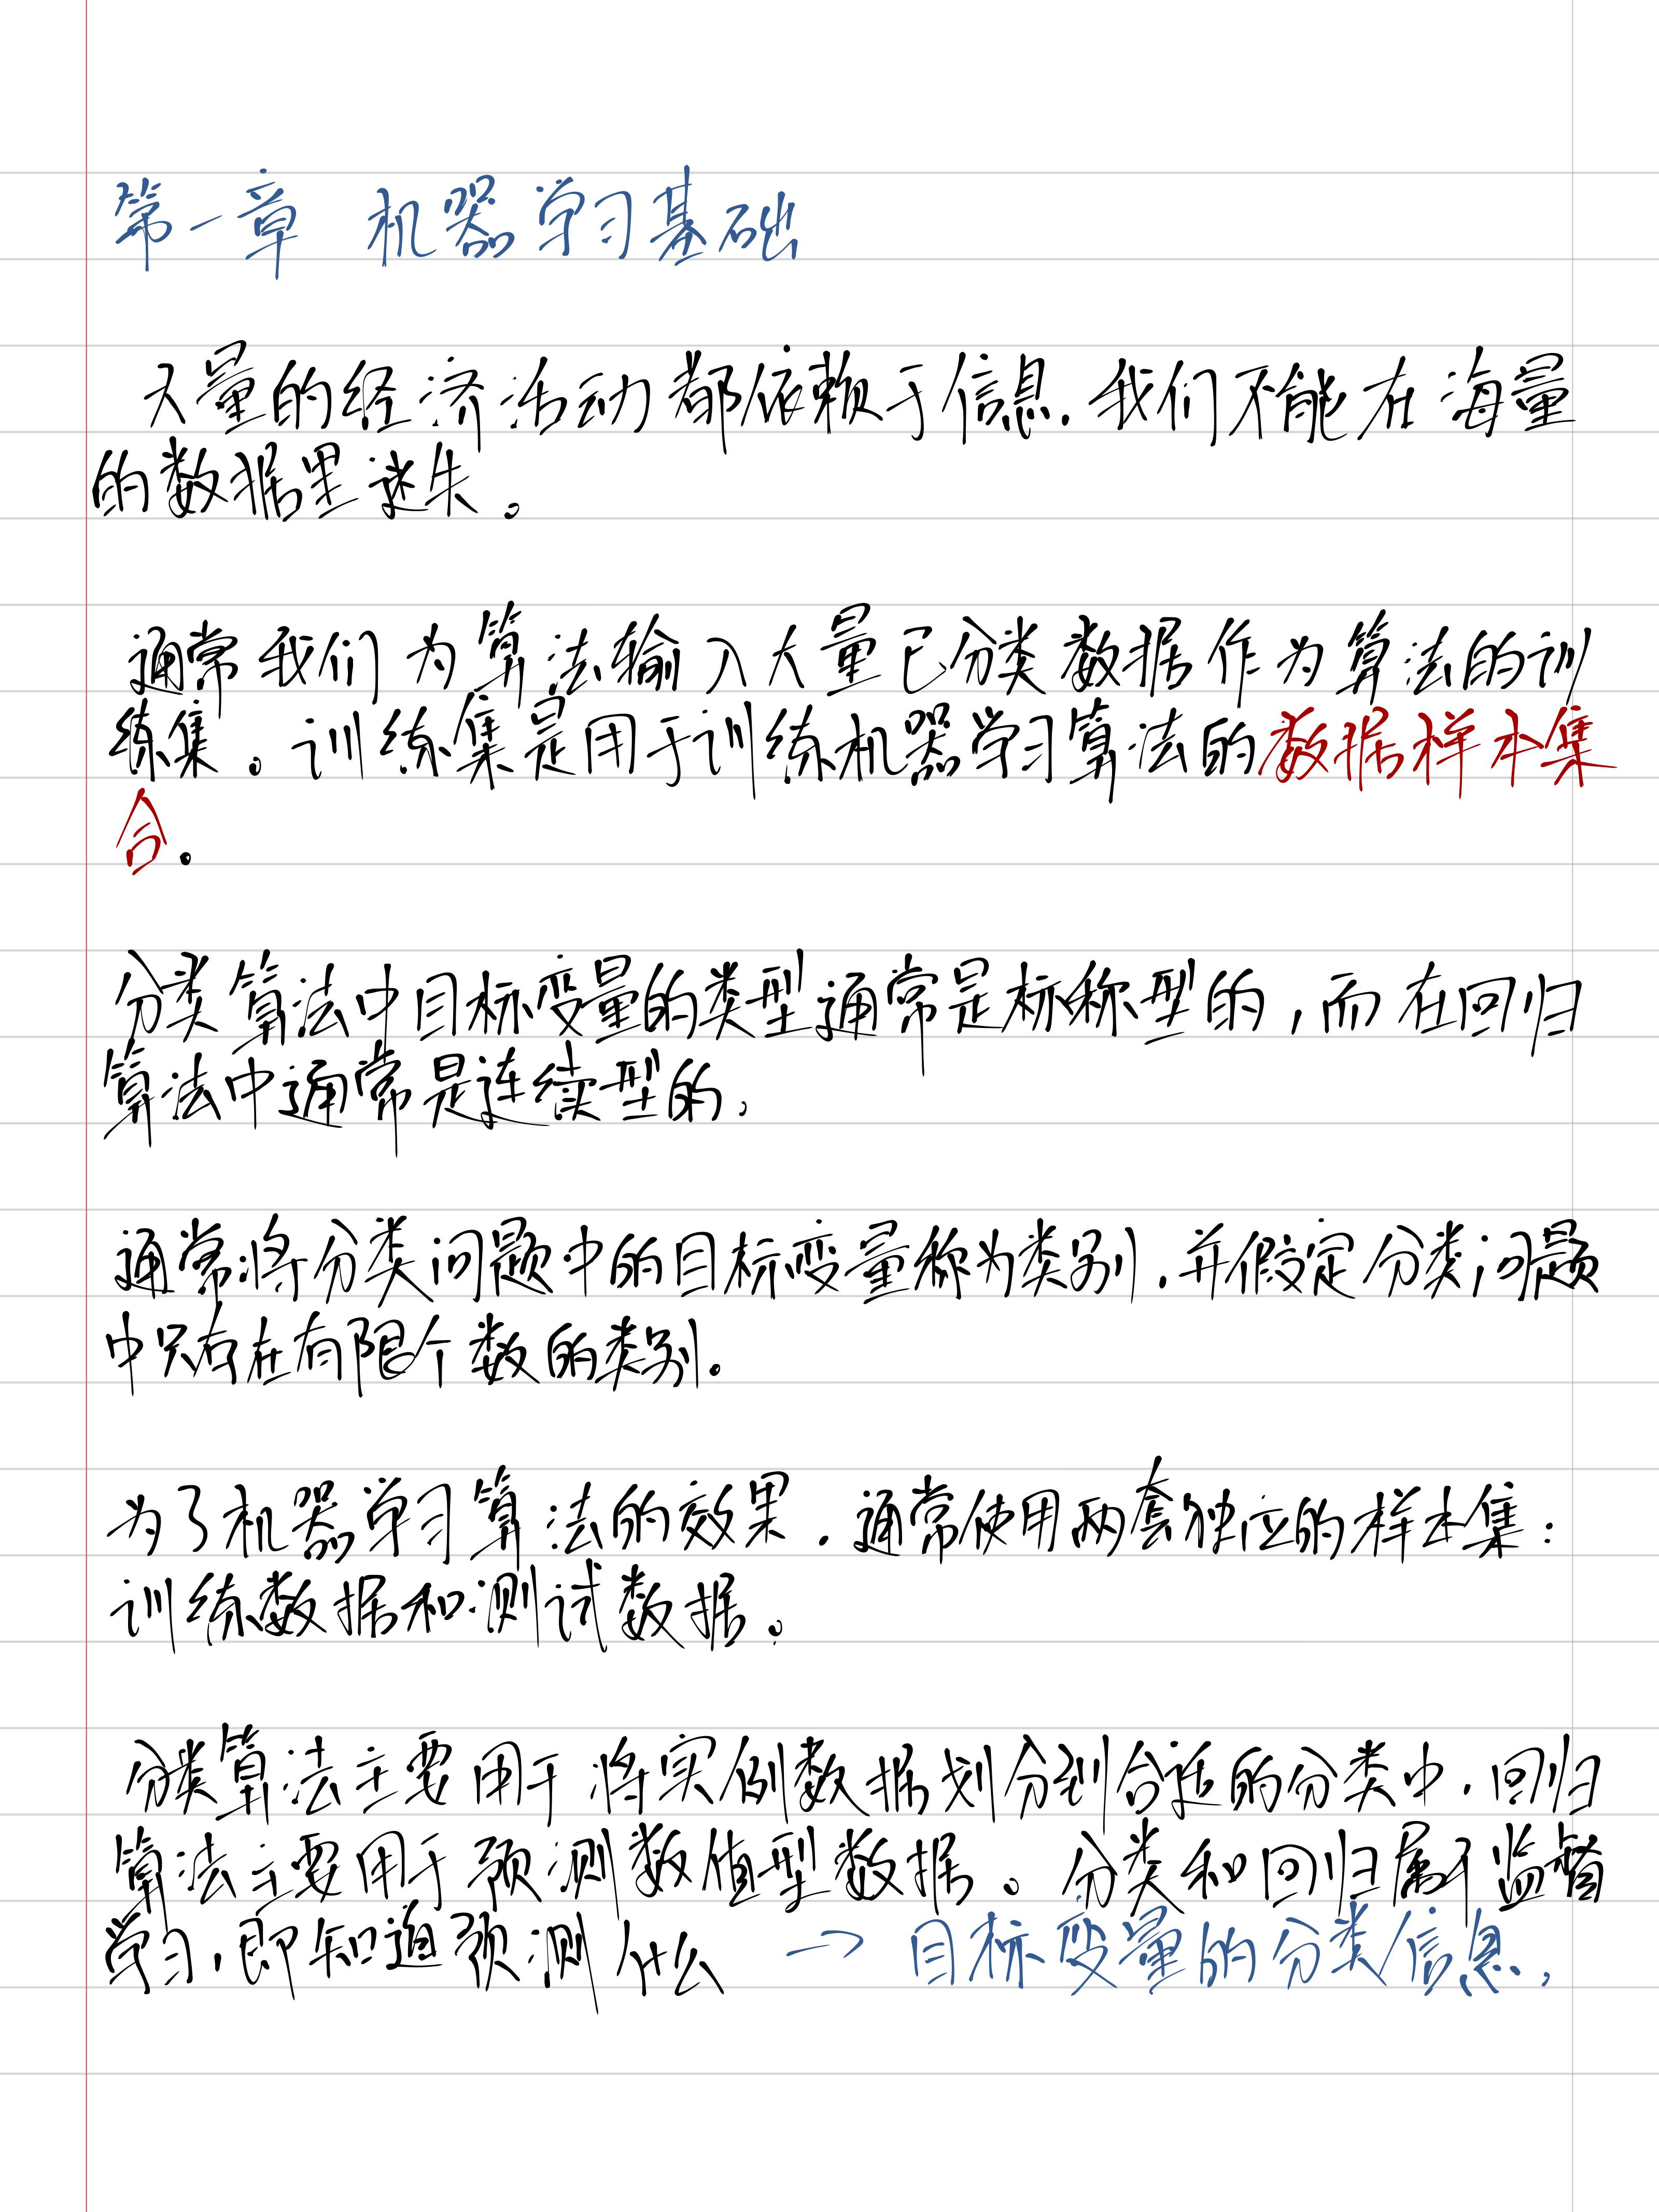 第一章 机器学习基础
大量的经济活动都依赖于信息,我们不能在海量
的数据里迷失。
通常我们为算法输入大量已分类数据作为算法的训
练集。训练集是用于训练机器学习算法的数据样本集
合.
分类算法中目标变量的类型通常是标称型的,而在回归
算法中通常是连续型的,
通常将分类问题中的目标变量称为类别,并假定分类问题
中只存在有限个数的类别.
为了机器学习算法的效果,通常使用两套独立的样本集:
训练数据和测试数据。
分类算法主要用于将实例数据划分到合适的分类中,回归
算法主要用于预测数值型数据。分类和回归属于监督
学习,即知道预测什么 → 目标变量的分类信息,